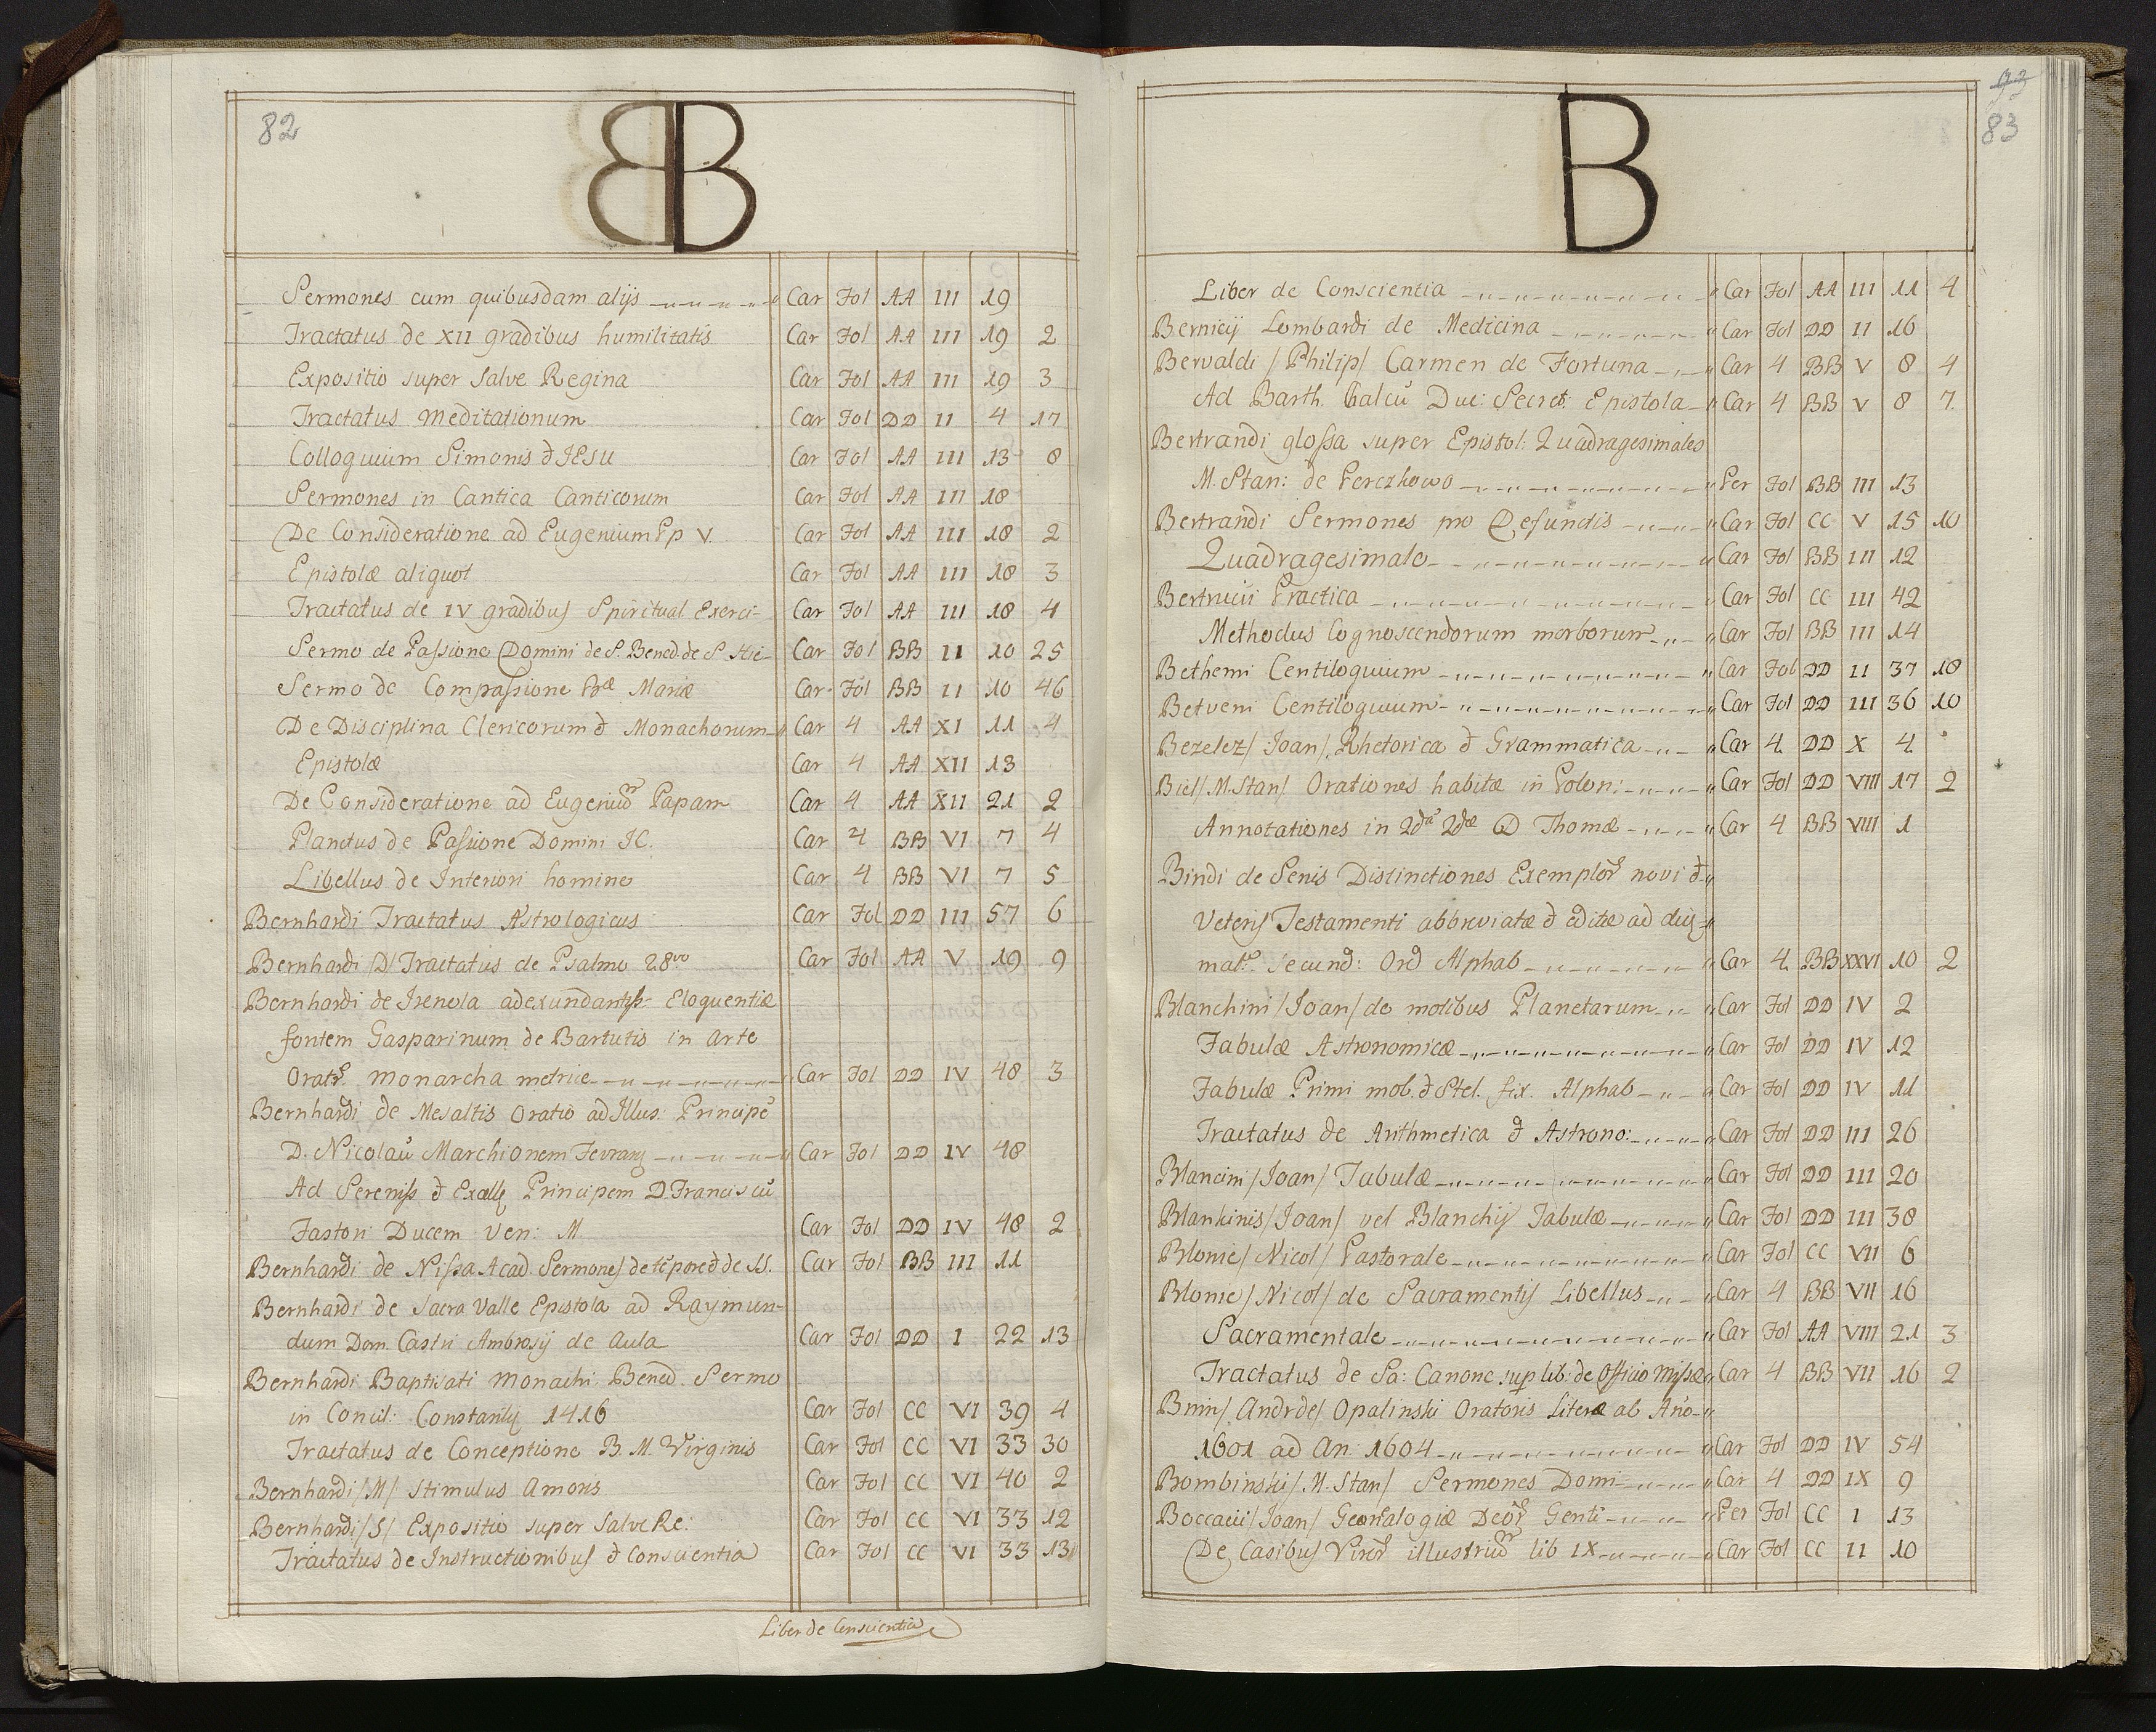 82
B
Sermones cum quibusdam alijs Car Fol AA III 19
Tractatus de XII gradibus humilitatis Car Fol AA III 19 2
Expositio super Salve Regina Car Fol AA III 19 3
Tractatus Meditationum Car Fol DD II 4 17
Colloquium Simonis & IESU Car Fol AA III 13 8
Sermones in Cantica Canticorum Car Fol AA III 18
De Consideratione ad Eugenium Pp V. Car Fol AA III 18 2
Epistolæ aliquot Car Fol AA III 18 3
Tractatus de IV gradibus Spiritual Exerci- Car Fol AA III 18 4
Sermo de Passione Domini de S. Bened. de S. Hie- Car Fol BB II 10 25
Sermo de Compassione Bæ Mariæ Car Fol BB II 10 46
De Disciplina Clericorum & Monachorum Car 4 AA XI 11 4
Epistolæ Car 4 AA XII 13
De Consideratione ad Eugeniu Papam Car 4 AA XII 21 2
Planctus de Passione Domini IC. Car 4 BB VI 7 4
Libellus de Interiori homine Car 4 BB VI 7 5
Bernhardi Tractatus Astrologicus Car Fol DD III 57 6
Bernhardi /D/ Tractatus de Psalmo 28vo Car Fol AA V 19 9
Bernhardi de Isenola Eloquentiæ
fontem Gasparinum de Bartutis in arte
Oratr. monarcha metrice Car Fol DD IV 48 3
Bernhardi de Mesaltis Oratio ad Illus: Principē
D. Nicolaū Marchionem Ferrarij Car Fol DD IV 48
Ad Sereniss & Excell Principem D. Franciscū
Fastori Ducem Ven: M. Car Fol DD IV 48 2
Bernhardi de Nissa Acad. Sermones de tēpore & de SS. Car Fol BB III 11
Bernhardi de Sacra Valle Epistola ad Raymun-
dum Dom. Castri Ambrosij de Aula Car Fol DD I 22 13
Bernhardi Baptisati Monachi Bened. Sermo
in Concil: Constantij 1416 Car Fol CC VI 39 4
Tractatus de Conceptione B. M. Virginis Car Fol CC VI 33 30
Bernhardi /M/ Stimulus Amoris Car Fol CC VI 40 2
Bernhardi /S/ Expositio super Salve Re: Car Fol CC VI 33 12
Tractatus de Instructionibus & Conscientia Car Fol CC VI 33 13
Liber de Conscientia
93
83
B
Liber de Conscientia Car Fol AA III 11 4
Bernicij Lombardi de Medicina Car Fol DD II 16
Bervaldi /Philip/ Carmen de Fortuna Car 4 BB V 8 4
Ad Barth. Calcū Duc: Secret: Epistola Car 4 BB V 8 7
Bertrandi glossa super Epistol: Quadragesimales
M. Stan: de Perczkowo Per Fol BB III 13
Bertrandi Sermones pro Defunctis Car Fol CC V 15 10
Quadragesimale Car Fol BB III 12
Bertrucii Practica Car Fol CC III 42
Methodus Cognoscendorum morborum Car Fol BB III 14
Bethemi Centiloquium Car Fol DD II 37 18
Betveni Centiloquium Car Fol DD III 36 10
Bezelez /Ioan/ Rhetorica & Grammatica Car 4 DD X 4
Biel /M. Stan/ Orationes habitæ in Polon: Car Fol DD VIII 17 2
Annotationes in 2dā 2dæ D Thomæ Car 4 BB VIII 1
Bindi de Senis Distinctiones Exemplor novi &
Veteris Testamenti abbreviatæ & editæ ad
secund: Ord Alphab Car 4 BB XXVI 10 2
Blanchini /Ioan/ de motibus Planetarum Car Fol DD IV 2
Tabulæ Astronomicæ Car Fol DD IV 12
Tabulæ Primi mob. & Stel. fix. Alphab Car Fol DD IV 11
Tractatus de Arithmetica & Astrono: Car Fol DD III 26
Blancini /Ioan/ Tabulæ Car Fol DD III 20
Blankinis /Ioan/ vel Blanchij Tabulæ Car Fol DD III 38
Blonie /Nicol/ Pastorale Car Fol CC VII 6
Blonie /Nicol/ de Sacramentis Libellus Car 4 BB VII 16
Sacramentale Car Fol AA VIII 21 3
Tractatus de Sa: Canone sup lib: de Officio Missæ Car 4 BB VII 16 2
Bnin /Andr de/ Opalinski Oratoris Literæ ab Año
1601 ad An: 1604 Car Fol DD IV 54
Bombinski /M. Stan/ Sermones Domi- Car 4 DD IX 9
Boccacii /Ioan/ Genealogiæ Deor Genti- Per Fol CC I 13
De Casibus Viror illustriū lib IX Car Fol CC II 10